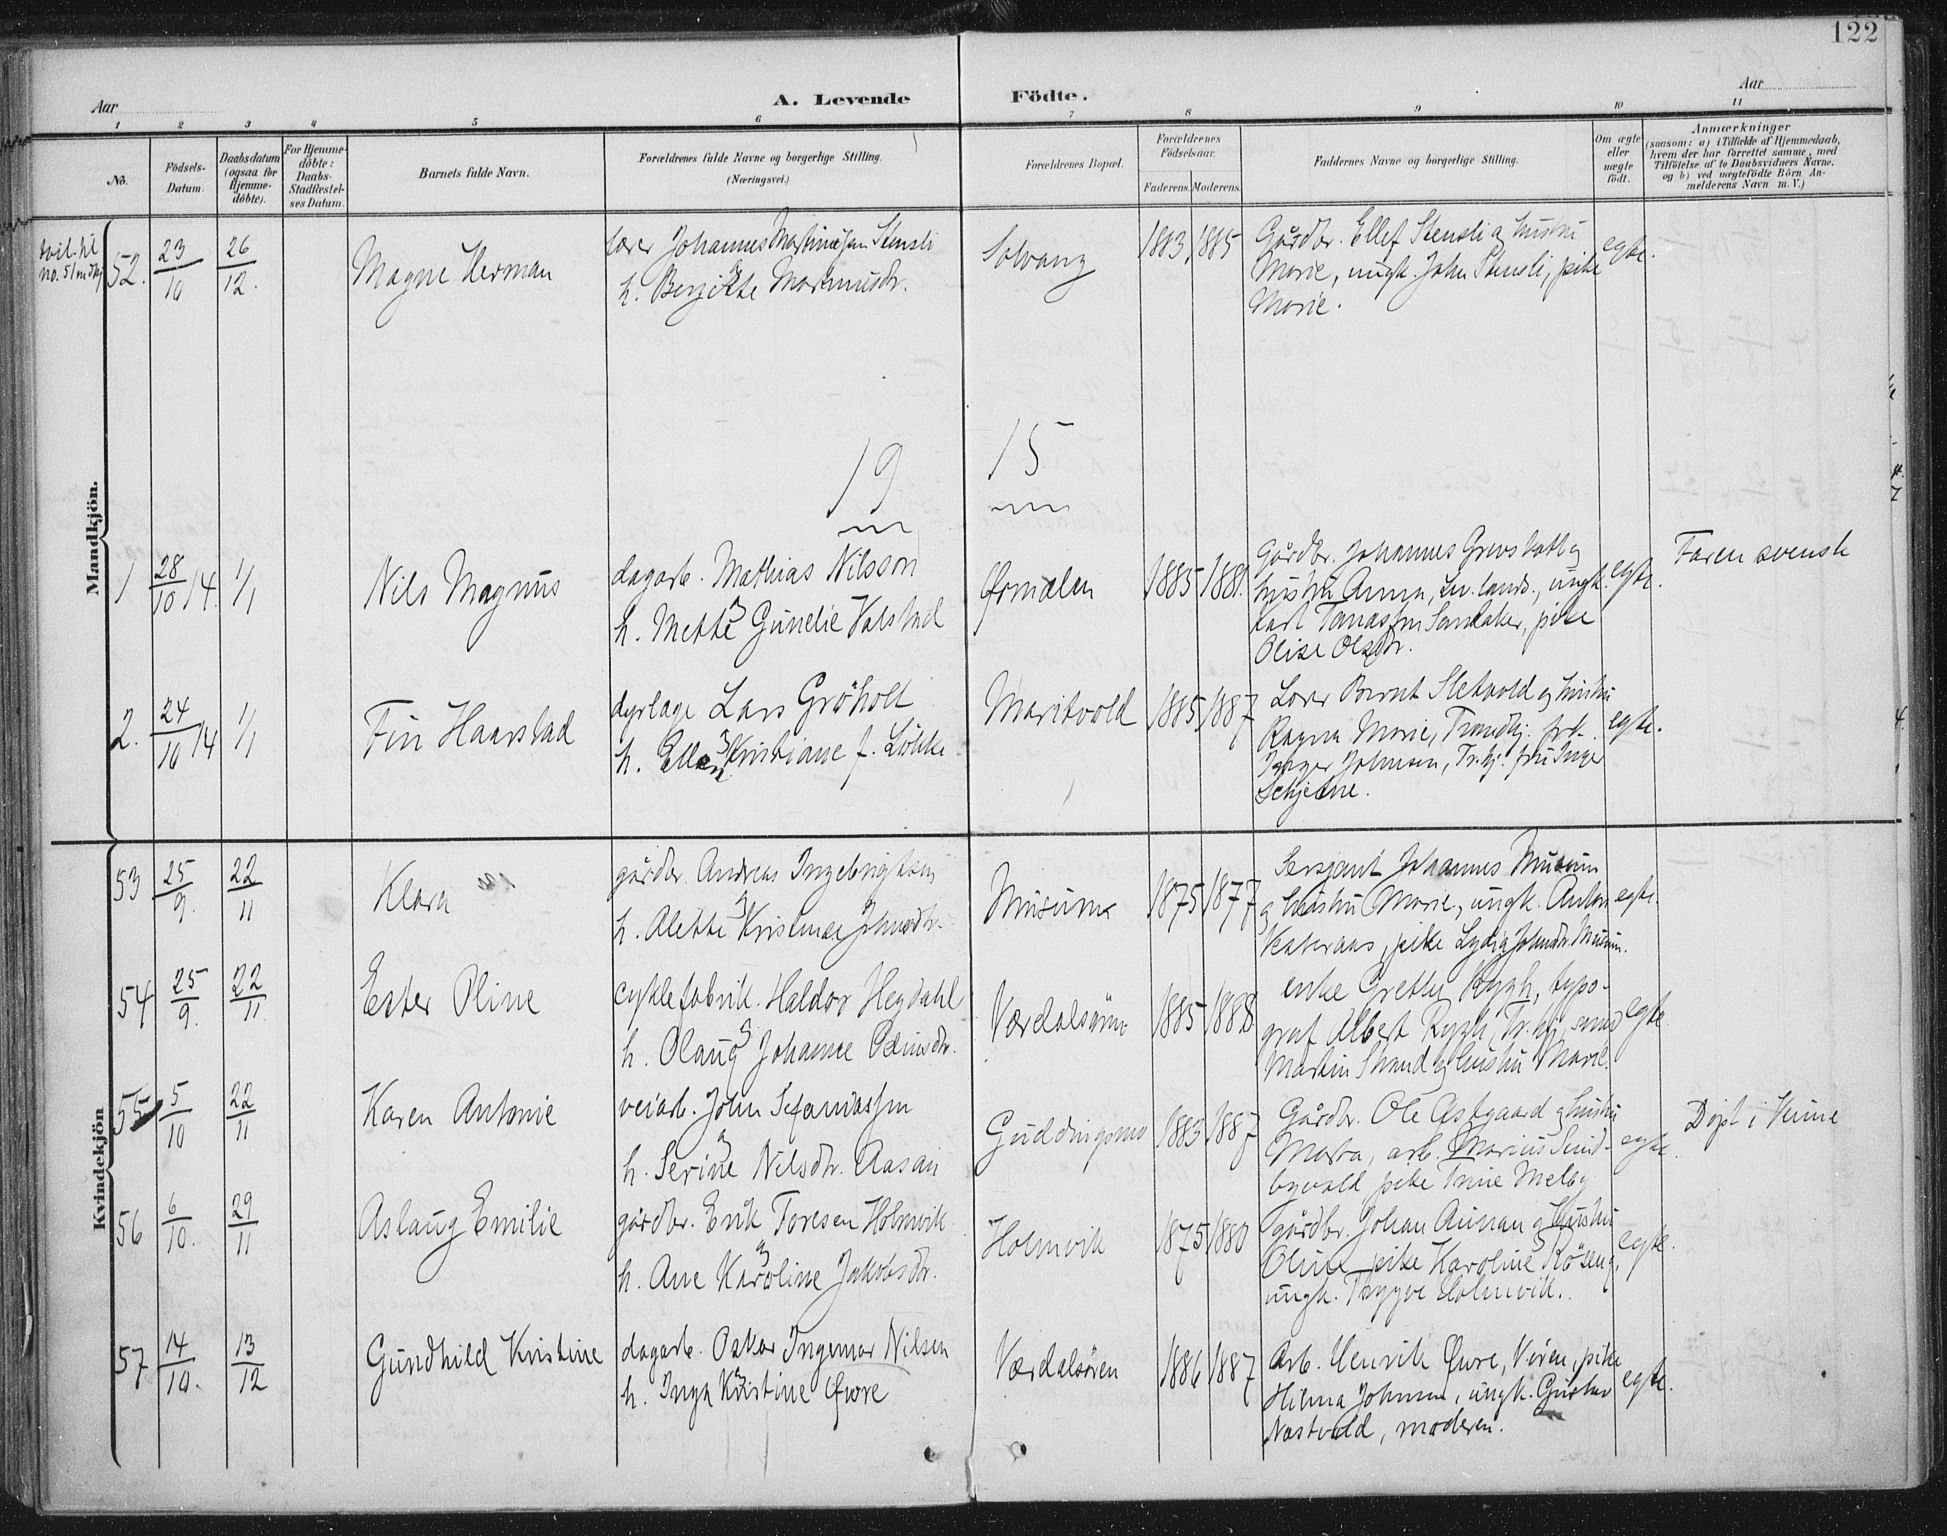 122
Aar
A. Levende Födte.
Aar
1 2 3 4 5 6 7 8 9 10 11
No.
Födsels-Datum.
Daabsdatum (ogsaa for Hjemme-döbte).
For Hjemme-döbte: Daabs-Stadfæstel-ses Datum.
Barnets fulde Navn.
Forældrenes fulde Navne og borgerlige Stilling. (Næringsvei.)
Forældrenes Bopæl.
Forældrenes Födselsaar.
Faderens. Moderens.
Faddernes Navne og borgerlige Stilling.
Om ægte eller uægte födt.
Anmærkninger
(saasom: a) i Tilfælde af Hjemmedaab, hvem der har forrettet samme, med Tilföielse af to Daabsvidners Navne. og b) ved uægtefödte Börn An-melderens Navn m. V.)
Mandkjön.
no. 51
52. 23/10 26/12. Magne Herman
lærer Johannes Stensli
h. Bergitte
Solvang 1883 1885
Gårdbr. Ellef Stensli og hustru
Marie, ungk. John Stensli, pike
Marie.
egte.
19 15
1 28/10 14. 1/1 Nils Magnus
dagarb. Mathias Nilsson
h. Mette Gunelie Valstad
Ørmælen 1885 1881.
Gårdbr. Johannes
hustru Anna, ungk.
pike
Olise Olsdr.
egte.
Faren svensk
2. 24/10 14 1/1 Fin Haarstad
dyrlæge Lars Gröholt
h. Ellen Kristiane f. Lökke
Maritvold 1885 1887
Lærer Bernt Sletvold og hustru
Ragna Marie, Trondhj. frk.
Inger Johnsen, Tr.hj. fru Inger
Schjetne.
egte.
Kvindekjön
53 25/9. 22/11 Klara
gårdbr. Andreas Ingebrigtsen
h. Alette
Musum 1875 1877
Sersjant Johannes Musum
og hustru Marie, ungk. Anton
pike Lydia Johnsdr. Musum.
egte.
54 25/9. 22/11 Ester Oline
cyklefabrik. Haldor Hegdahl
h. Olaug Johanne Odinsdr.
Værdalsøren 1885 1888
enke Grethe Rygh, typo-
graf Albert Rygh, Tr.hj., smed
Martin Strand og hustru Marie.
egte.
55 5/10 22/11 Karen Antonie
veiarb. John Sefaniassen
h. Serine Nilsdr. Aasan
Guddingsmo 1883 1887
Gårdbr. Ole Østgaard og hustru
Marta, arb. Marius Sund-
byvald pike Trine Melby
egte.
Døpt i Vinne
56 6/10. 29/11 Aslaug Emilie
gårdbr. Erik Toresen Holmvik
h. Ane Karoline Jakobsdr.
Holmvik 1875 1880
gårdbr. Johan Aunan og hustru
Oline pike Karoline Röseng,
ungk. Trygve Holmvik.
egte.
57 14/10. 13/12 Gundhild Kristine
dagarb. Oskar Ingemar Nilsen
h. Inga Kristine Øvre
Værdalsören 1886 1887
Arb. Henrik Øvre, Vören, pike
Hilma Johnsen, ungk. Gustav
Nestvold, moderen.
egte.